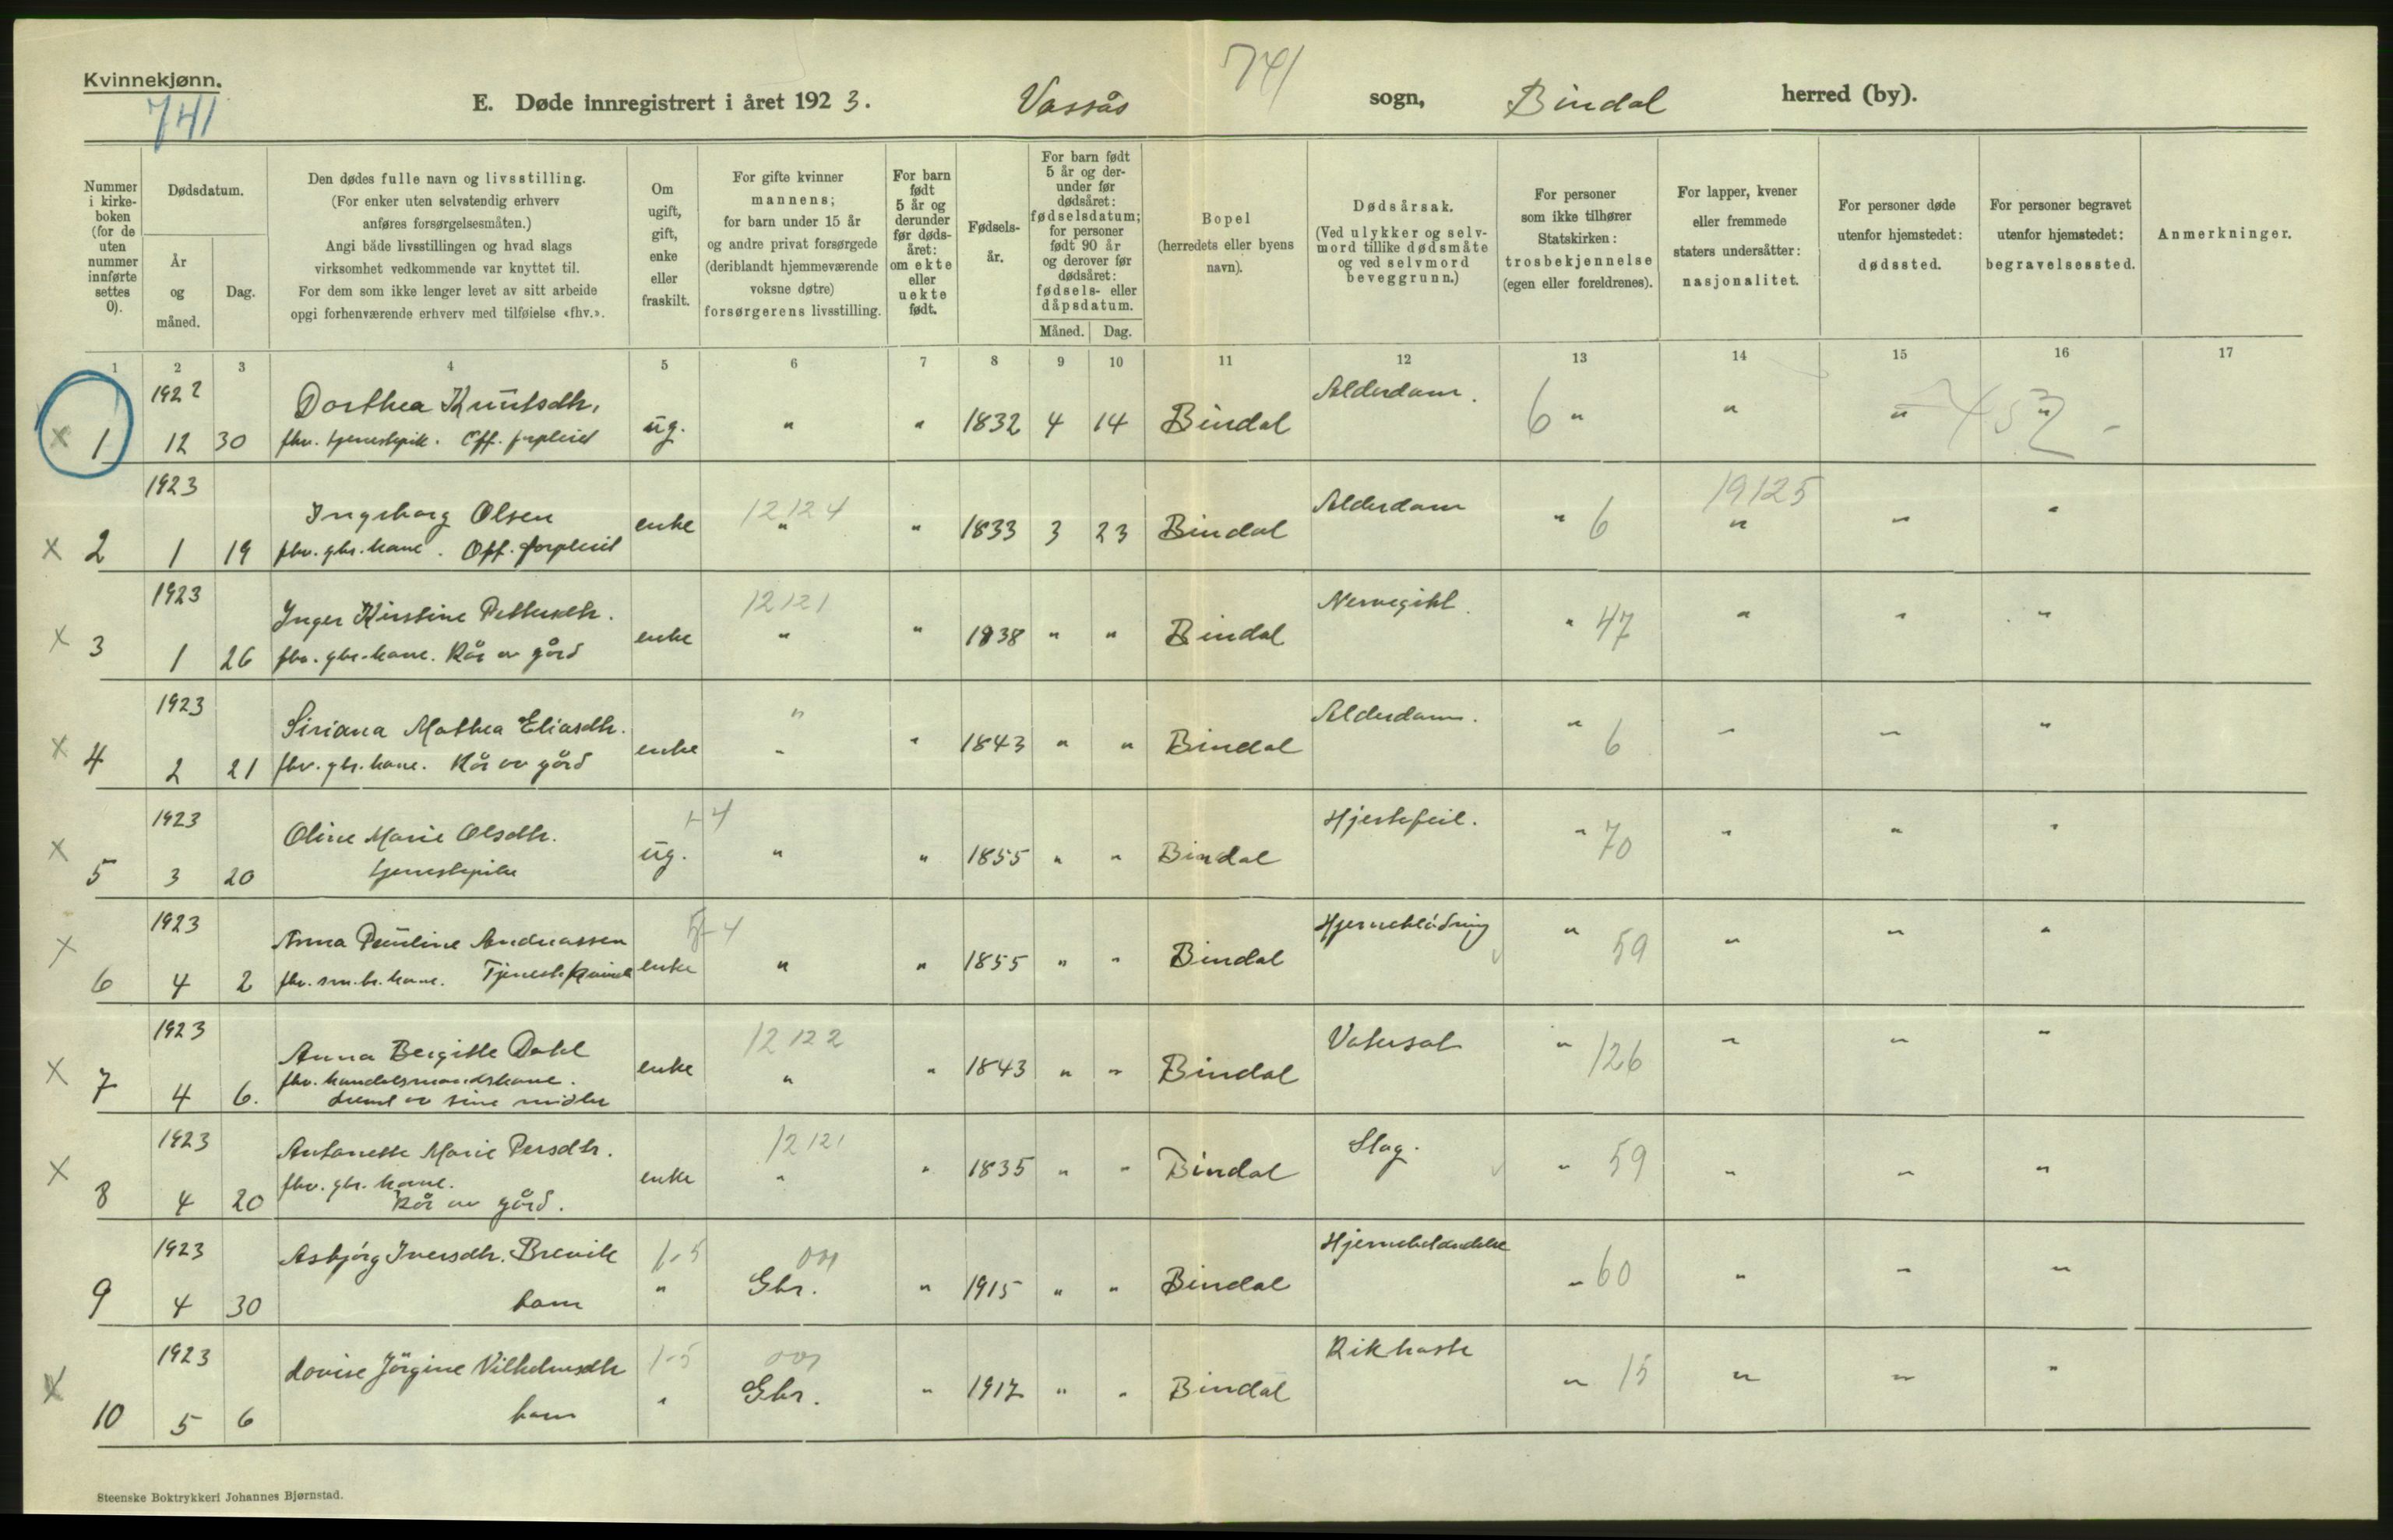 Kvinnekjønn.
741
741
E. Døde innregistrert i året 1923. Vassås sogn, Bindal herred (by).
Nummer i kirkeboken (for de uten nummer innførte settes 0).
Dødsdatum.
År og måned.
Dag.
Den dødes fulle navn og livsstilling.
(For enker uten selvstendig erhverv
anføres forsørgelsesmåten.)
Angi både livsstillingen og hvad slags
virksomhet vedkommende var knyttet til.
For dem som ikke lenger levet av sitt arbeide
opgi forhenværende erhverv med tilføielse «fhv.».
Om ugift, gift, enke eller fraskilt.
For gifte kvinner
mannens;
for barn under 15 år
og andre privat forsørgede
(deriblandt hjemmeværende
voksne døtre)
forsørgerens livsstilling.
For barn født 5 år og derunder før dødsåret: om ekte eller uekte født.
Fødselsår.
For barn født 5 år og derunder før dødsåret: fødselsdatum; for personer født 90 år og derover før dødsåret: fødsels- eller dåpsdatum.
Måned. Dag.
Bopel
(herredets eller byens
navn).
Dødsårsak.
(Ved ulykker og selvmord tillike dødsmåte
og ved selvmord
beveggrunn.)
For personer
som ikke tilhører
Statskirken:
trosbekjennelse
(egen eller foreldrenes).
For lapper, kvener
eller fremmede
staters undersåtter:
nasjonalitet.
For personer døde
utenfor hjemstedet:
dødssted.
For personer begravet
utenfor hjemstedet:
begravelsessted.
Anmerkninger.
1 2 3 4 5 6 7 8 9 10 11 12 13 14 15 16 17
1922 Dorthea Knutsdtr. Alderdom.
x 1 12 30 fhv. tjenestepik. Off. forpleiet ug. " " 1832 4 14 Bindal 6 " " " "
1923 Ingeborg Olsen 12124 Alderdom 19125
x 2 1 19 fhv. gbr. kone. Off. forpleiet enke " " 1833 3 23 Bindal " 6 " " "
1923 Inger Kirstine Pettersdtr. 12121 Nervegikt.
x 3 1 26 fhv. gbr. kone. Kår av gård enke " " 1838 " " Bindal " 47 " " "
1923 Siriana Mathea Eliasdtr. " Alderdom.
x 4 2 21 fhv. gbr. kone. Kår av gård enke " " 1843 " " Bindal " 6 " " "
1923 Oline Marie Olsdtr. Hjertefeil.
x 5 3 20 tjenestepike ug. " " 1855 " " Bindal " 70 " " "
1923 Anna Pauline Andreassen Hjerneblødning
x 6 4 2 fhv. sm.br. kone. enke " " 1855 " " Bindal " 59 " " "
1923 Anna Bergitte Dahl 12122 Vatersot
x 7 4 6. fhv. handelsmandskone. enke " " 1843 " " Bindal " 126 " " "
Levet av sine midler
1923 Antonette Marie Persdtr. 12121 Slag.
x 8 4 20 fhv. gbr. kone. enke " " 1835 " " Bindal " 59 " " "
Kår av gård.
1923 Asbjørg Iversdtr. Brevik 1-5 Hjernebetændelse
9 4 30 barn " Gbr. " 1915 " " Bindal " 60 " " "
1923 Lovise Jørgine Vilhelmsdtr 1-5 Kikhoste
x 10 5 6 barn " Gbr. " 1917 " " Bindal " 15 " " "
Steenske Boktrykkeri Johannes Bjørnstad.